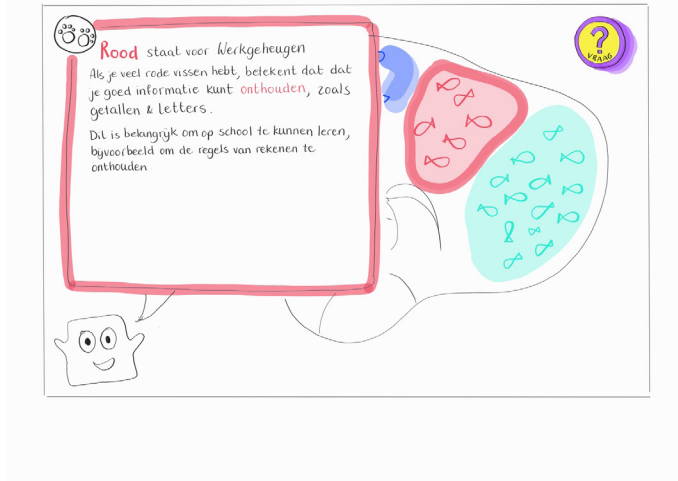 Rood staat voor Werkgeheugen
Als je veel rode vissen hebt, betekent dat dat
je goed informatie kunt onthouden, zoals
getallen & letters.
Dit is belangrijk om op school te kunnen leren,
bijvoorbeeld om de regels van rekenen te
onthouden
?
VRAAG